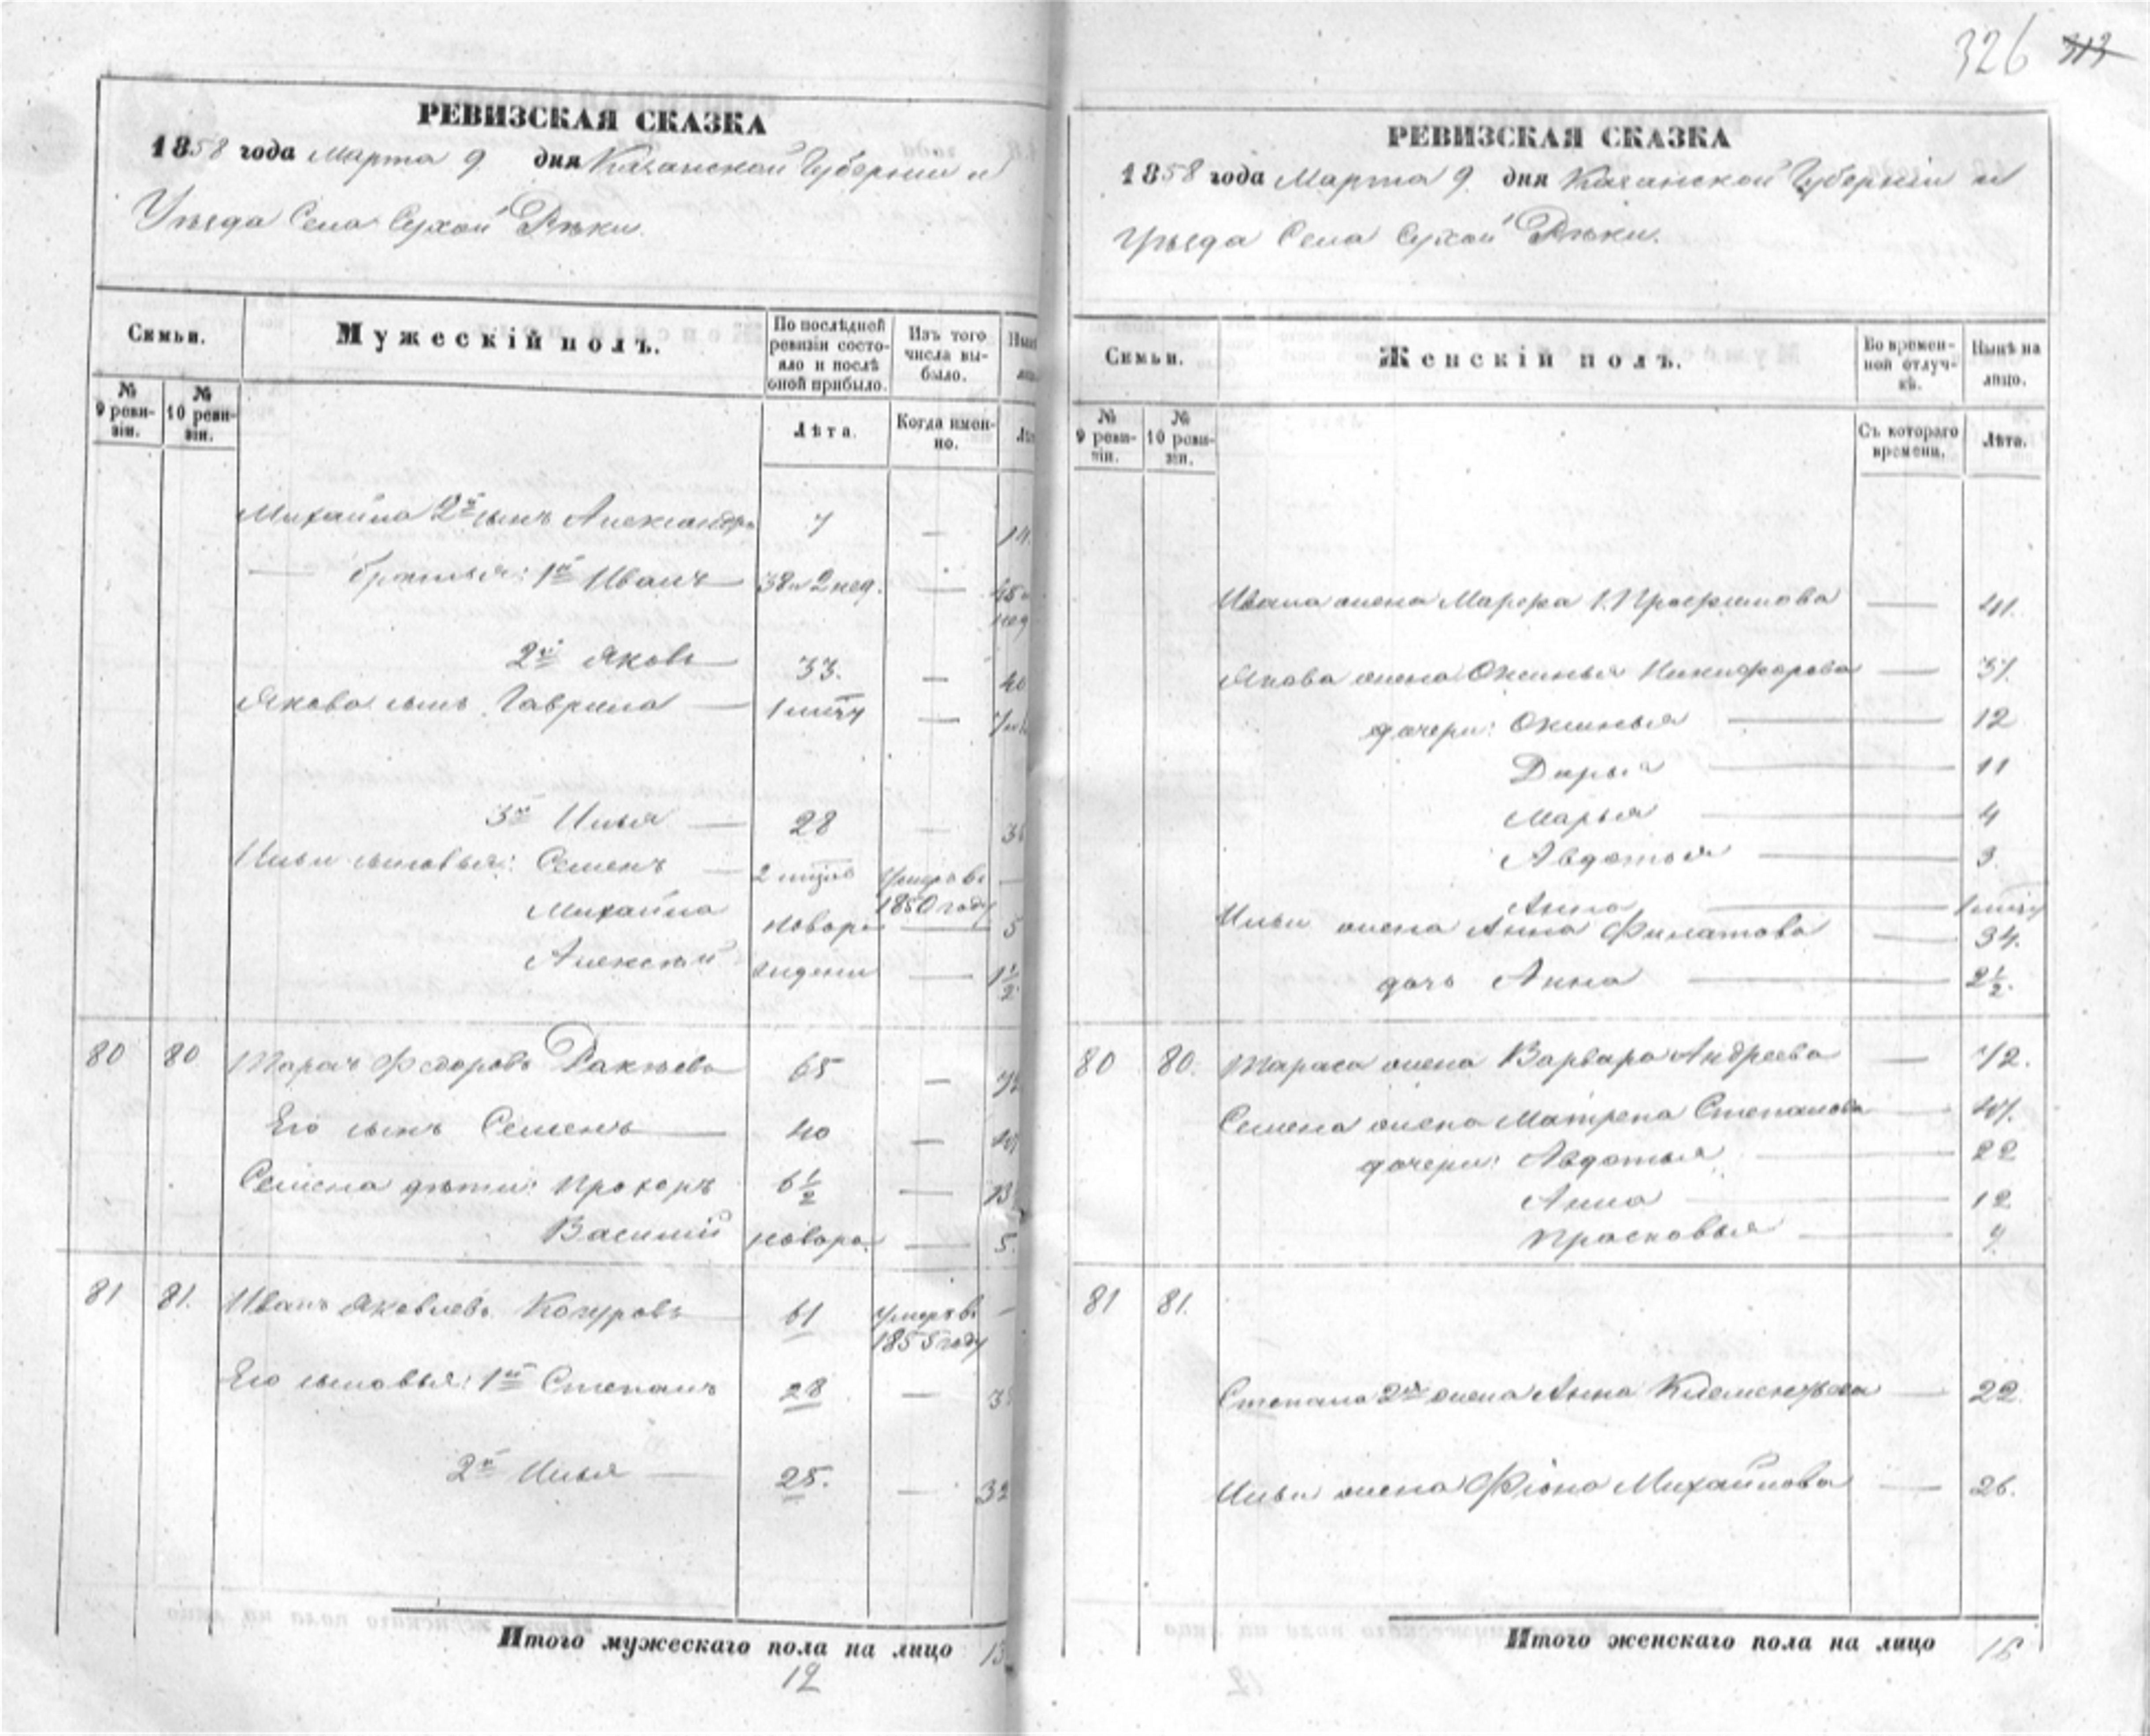 326 313
РЕВИЗСКАЯ СКАЗКА
1858 года Марта 9 дня Казанской Губернии и
Уѣзда Села Сухой Рѣки.
Семьи.
Мужескій полъ.
По послѣдней ревизіи состояло и послѣ оной прибыло.
Изъ того числа выбыло.
№ 9 ревизіи.
№ 10 ревизіи.
Лѣта.
Когда именно.
Михайла 2й сынъ Александръ 7 —
— братья: 1й Иванъ — 38 и 2 нед. —
2й Яковъ — 33. — 40
Якова сынъ Гаврила — 1 —
3й Илья — 28 —
Ильи сыновья: Семенъ — 2 Умеръ въ 1850 году —
Михайла новоро — 5
Алексѣй — 1½
80 80 Тарасъ Федоровъ 65 —
Его сынъ Семенъ — 40 —
Семена дѣти: Прохоръ 6½ — 13
Василій новоро. — 5.
81 81. Иванъ Яковлевъ 61 умеръ въ 1855 году —
Его сыновья: 1й Степанъ 28 —
2й Илья — 25. — 32
Итого мужескаго пола на лицо 13
12
РЕВИЗСКАЯ СКАЗКА
1858 года Марта 9 дня Казанской Губерніи и
Уѣзда Села Сухой Рѣки.
Семьи.
Женскій полъ.
Во временной отлучкѣ.
Нынѣ на лицо.
№ 9 ревизіи.
№ 10 ревизіи.
Съ котораго времени.
Лѣта.
Ивана жена Марфа — 41.
Якова жена Оксинья Никифорова — 37.
дочери: Оксинья — 12
Дарья — 11
Марья — 4
Авдотья — 3.
Анна — 1
Ильи жена Анна Филатова — 34.
дочь Анна — 2½.
80 80. Тараса жена Варвара Андреева — 72.
Семена жена Матрена Степанова — 47.
дочери: Авдотья — 22
Анна — 12
Прасковья — 9.
81 81.
Степана 2я жена Анна Клементьева — 22.
Ильи жена Фіона Михайлова — 26.
Итого женскаго пола на лицо 16